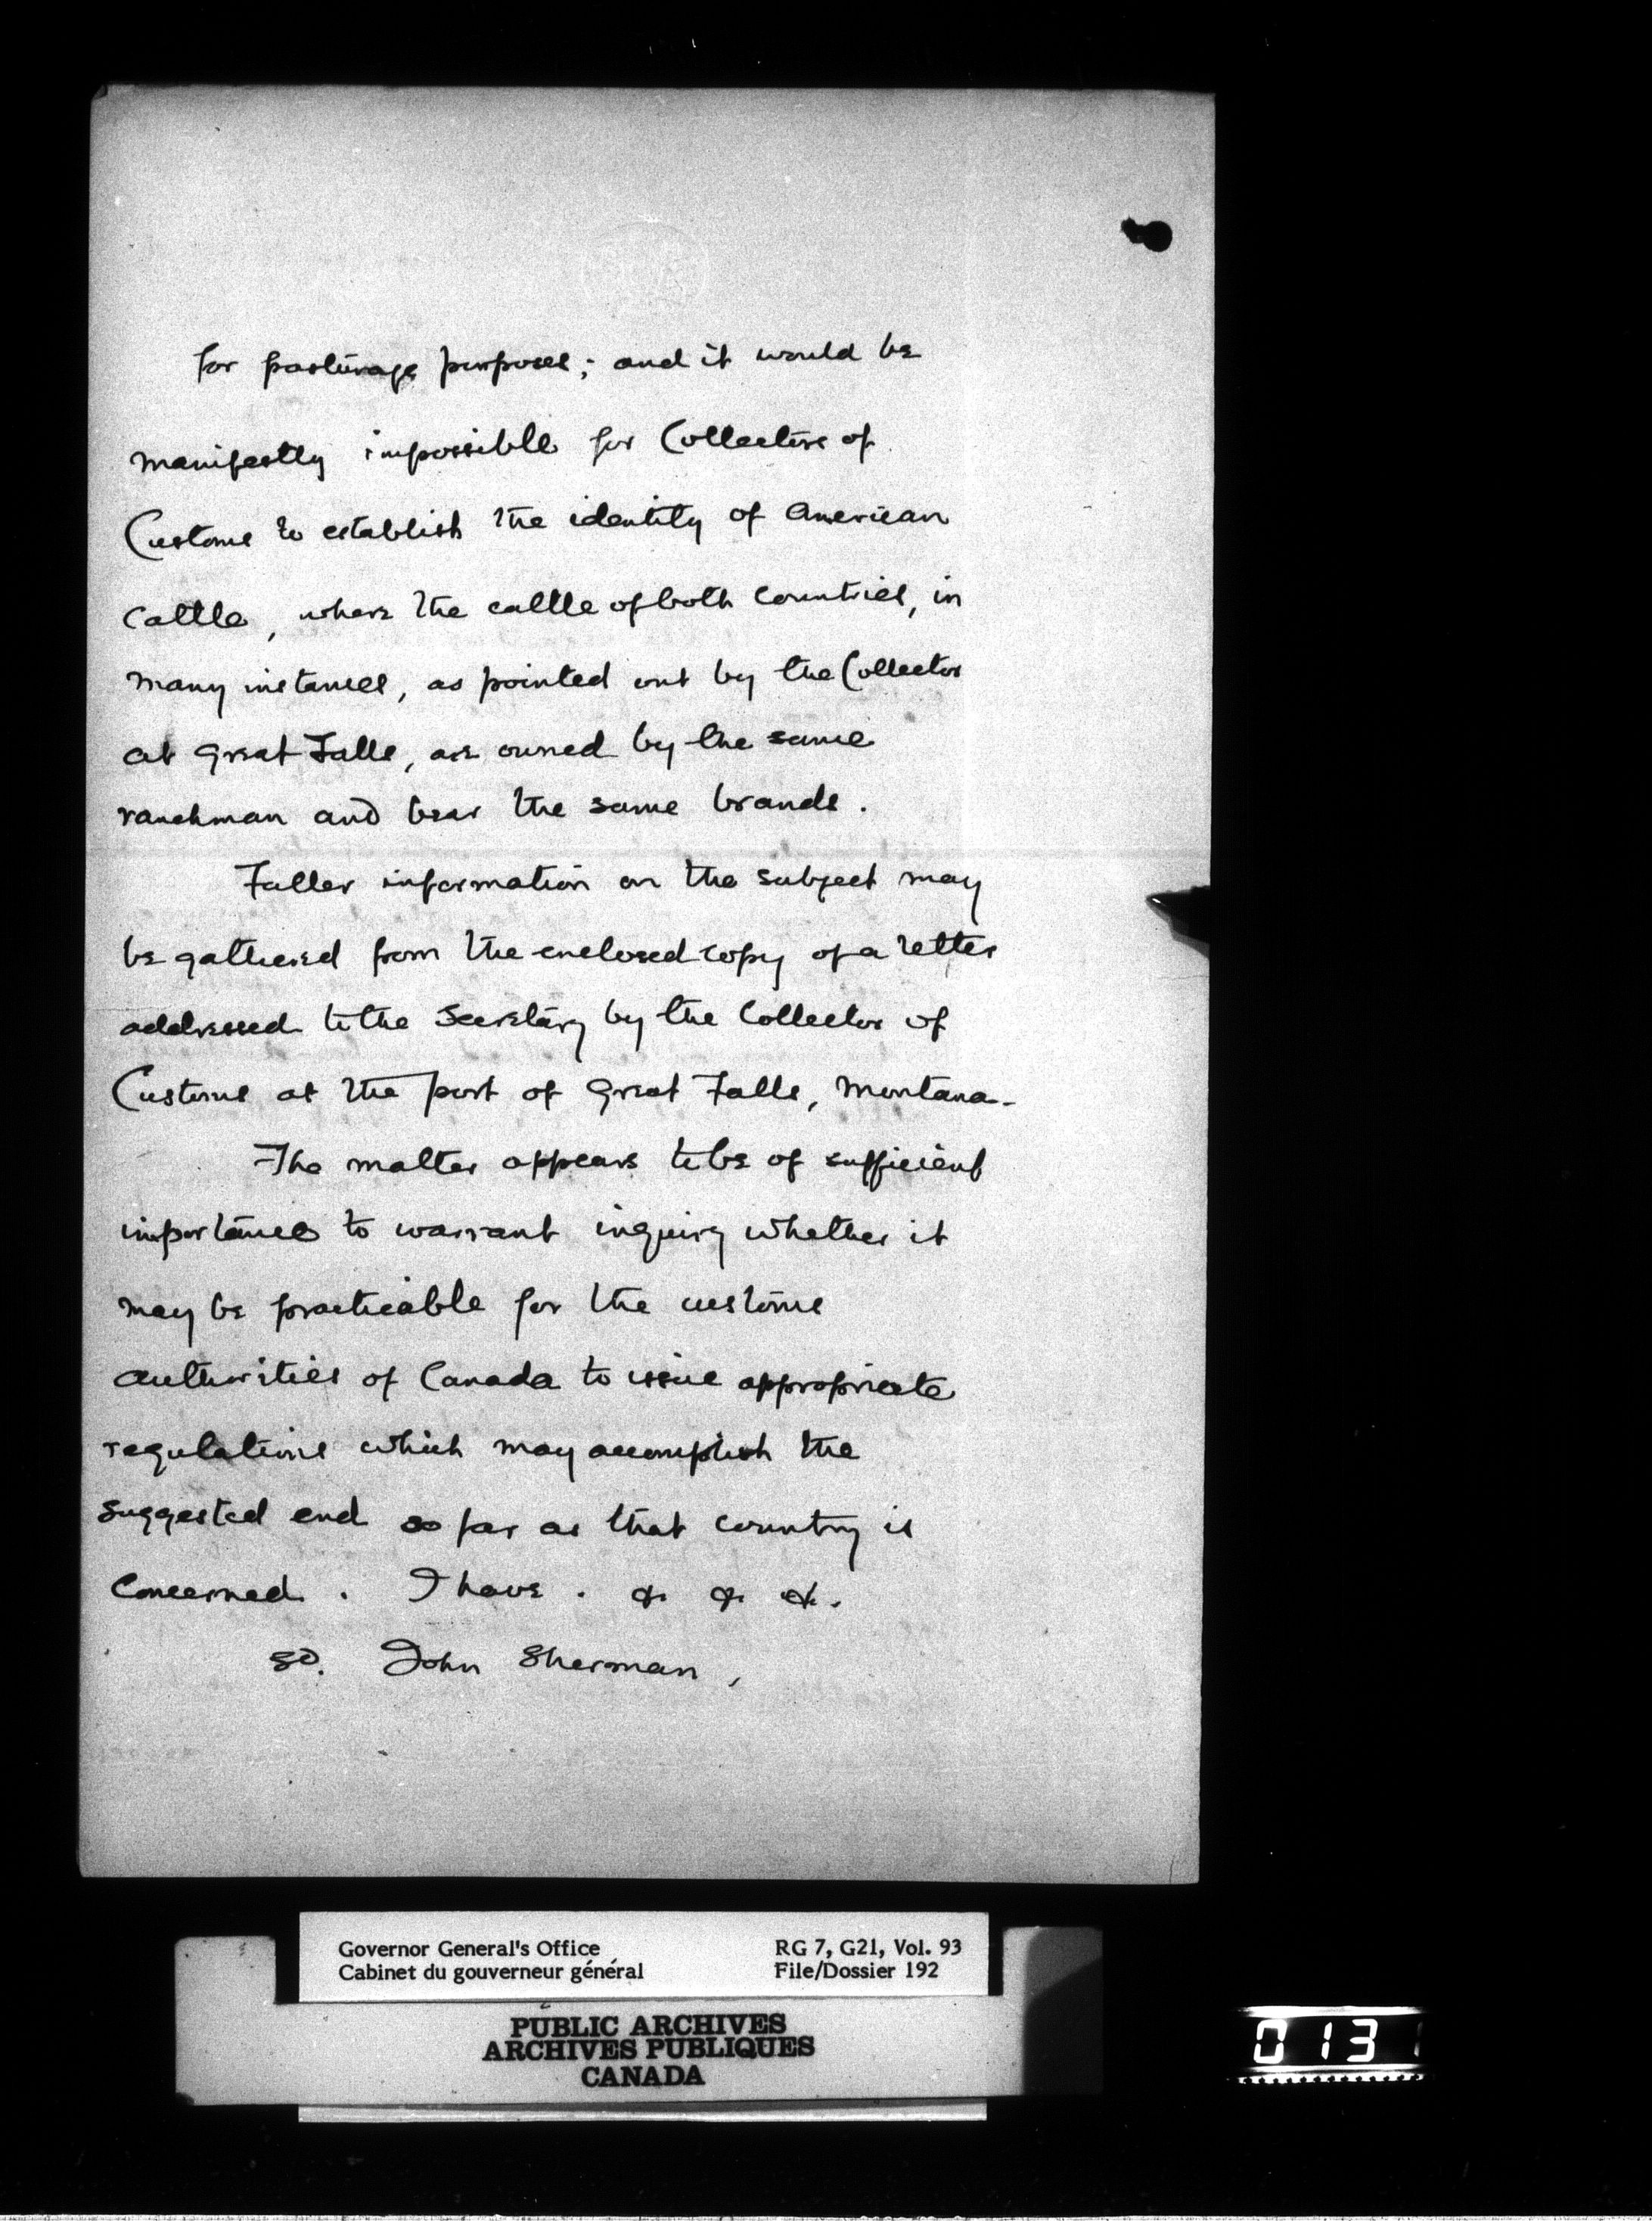 for pasturage purposes; and it would be
manifestly impossible for Collectors of
Customs to establish the identity of American
Cattle, where the cattle of both Countries, in
many instances, as pointed out by the Collector
at Great Falls, are owned by the same
ranchman and bear the same brands.
Fuller information on the subject may
be gathered from the enclosed copy of a letter
addressed to the Secretary by the Collector of
Customs at the port of Great Falls, Montana-
The matter appears to be of sufficient
importance to warrant inquiry whether it
may be practicable for the customs
authorities of Canada to issue appropriate
regulations which may accomplish the
suggested end so far as that country is
Concerned. I have. &. &. &.
sd. John Sherman,
Governor General's Office RG 7, G21, Vol. 93
Cabinet du gouverneur général File/Dossier 192
PUBLIC ARCHIVES
ARCHIVES PUBLIQUES
CANADA
0131